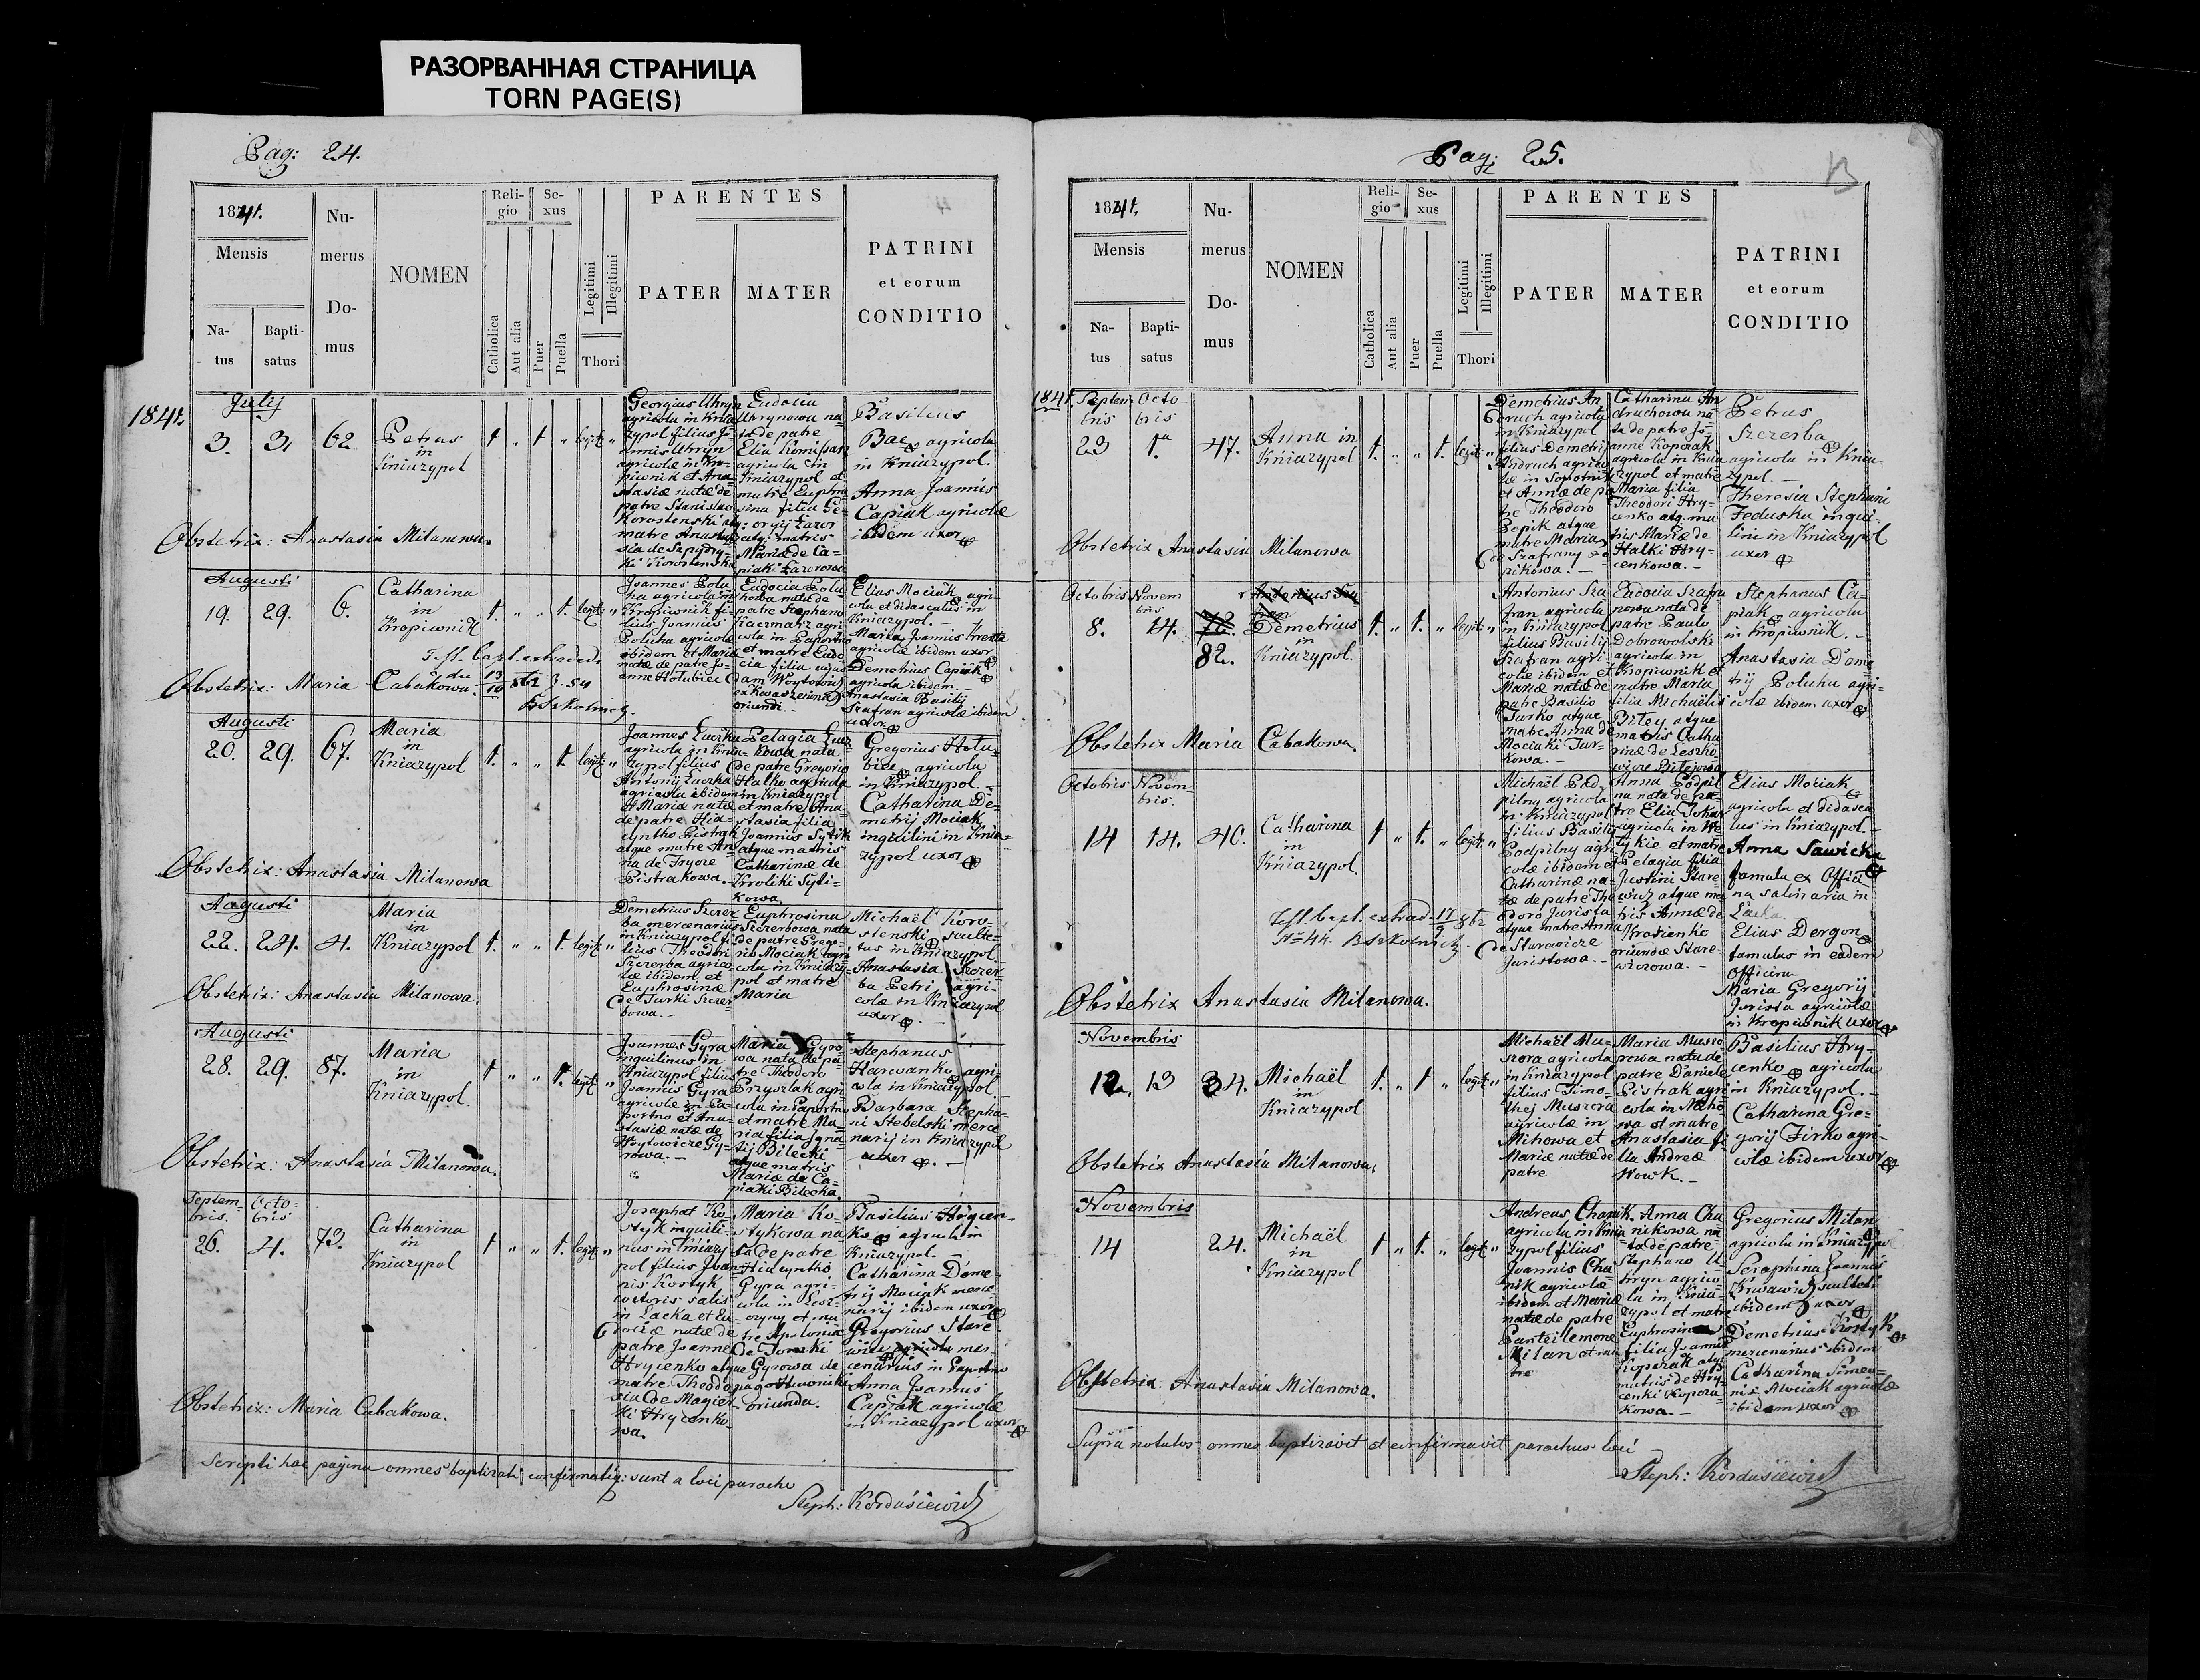 РАЗОРВАННАЯ СТРАНИЦА
TORN PAGE(S)
Pag: 24.
1841.
Mensis
Na-
tus
Bapti-
satus
Nu-
merus
Do-
mus
NOMEN
Reli-
gio
Catholica
Aut alia
Se-
xus
Puer
Puella
Legitimi
Illegitimi
Thori
PARENTES
PATER
MATER
PATRINI
et eorum
CONDITIO
1841.
Julij
3. 31 62
Petrus
in
Kniazypol
Georgius Uhryn
agricola in Knia
zypol filius Jo-
annis Uhryn
agricolæ in Kro-
piwnik et Ana-
stasiæ natæ de
patre Stanislao
Korostenski atq:
matre Anasta-
sia de
Eudocia
Uhrynowa na
ta de patre
Elia Komissarz
agricola in
Kniazypol et
matre Euphro
sina filia Ge-
orgij Lazor
atq: matris
Mariæ de Ca-
piaki Lazorowa
Basilius
Bac agricola
in Kniazypol.
Anna Joannis
Capiak agricolæ
ibidem uxor
Obstetrix: Anastasia Milanowa.
Augusti
19. 29. 6.
Catharina
in
Kropiwnik
Joannes Polu
ha agricola in
Kropiwnik fi-
lius Joannis
Poluha agricolæ
ibidem et Mariæ
natæ de patre Jo-
anne Holubiec
Eudocia Polu
howa nata de
patre Stephano
Kaczmarz agri
cola in Paportno
et matre Eudo
cia filia cujus-
dam Woytowicz
oriundi.-
Elias Mociak agri-
cola et didasculus in
Kniazypol.-
Maria Joannis
agricolæ ibidem uxor
Demetrius Capiak
agricola ibidem
Anastasia Basilij
Szafran agricolæ ibidem
uxor
Obstetrix: Maria Cabakowa.
Augusti
20. 29. 67.
Maria
in
Kniazypol
Joannes Luczka
agricola in Knia-
zypol filius
Antonij Luczka
agricola ibidem
et Mariæ natæ
de patre Hia-
cyntho Pistrak
atque matre An
na de
Pistrakowa.
Pelagia Lucz
kowa nata
de patre Gregorio
Halko agricola
in Kniazypol
et matre Ana-
stasia filia
Joannis Sytik
atque matris
Catharinæ de
Kroliki Syti-
kowa.
Gregorius Holu-
biec agricola
in Kniazypol.-
Catharina De-
metrij Mociak
inquilini in Knia-
zypol uxor
Obstetrix: Anastasia Milanowa
Augusti
22. 24. 4.
Maria
in
Kniazypol
Demetrius Szczer
ba mercenarius
in Kniazypol fi-
lius Theodori
Szczerba agrico-
læ ibidem et
Euphrosinæ
de Turki Szczer
bowa.-
Euphrosina
Szczerbowa nata
de patre Grego-
rio Mociak agri
cola in Kniazy-
pol et matre
Maria
Michaël Koro-
stenski sculte-
tus in Kniazypol.-
Anastasia Szczer-
ba Petri agri-
colæ in Kniazypol
uxor
Obstetrix: Anastasia Milanowa.
Augusti
28. 29. 87.
Maria
in
Kniazypol.
Joannes Gyra
inquilinus in
Kniazypol filius
Joannis Gyra
agricolæ in Pa-
portno et Ana-
stasiæ natæ de
Woytowicze Gy-
rowa.-
Maria Gyro-
wa nata de pa-
tre Theodoro
Przyszlak agri-
cola in Paportno
et matre Ma-
ria filia Igna-
tij Bilecki
atque matris
Mariæ de Ca-
piaki Bilecka.
Stephanus
Harwanko agri-
cola in Kniazypol
Barbara Stepha-
ni Stebelski merce
narij in Kniazypol
uxor
Obstetrix: Anastasia Milanowa.
Septem-
bris.
Octo-
bris
26. 4. 73.
Catharina
in
Kniazypol
Josaphat Ko-
styk inquili-
nus in Kniazy-
pol filius Joan-
nis Kostyk
coctoris salis
in Lacka et Eu-
dociæ natæ de
patre Joanne
Hrycenko atque
matre Theodo-
sia de Magier-
ki Hrycenko-
wa.
Maria Ko-
stykowa na
ta de patre
Hiacyntho
Gyra agri-
cola in Lesz-
czyny et ma
tre Apolonia
de
Gyrowa de
pago
oriunda.
Basilius Hrycen-
ko agricola in
Kniazypol.-
Catharina Deme-
trij Mociak merce
narij ibidem uxor
Gregorius Stare
wicz agricola mer-
cenarius in Paportno
Anna Joannis
Capiak agricolæ
in Kniazypol uxor
Obstetrix: Maria Cabakowa.
Scripti hac pagina omnes baptizati confirmatiq: sunt a loci parocho
Steph: Kordasiewicz
Pag: 25.
1841.
Mensis
Na-
tus
Bapti-
satus
Nu-
merus
Do-
mus
NOMEN
Reli-
gio
Catholica
Aut alia
Se-
xus
Puer
Puella
Legitimi
Illegitimi
Thori
PARENTES
PATER
MATER
PATRINI
et eorum
CONDITIO
1841.
Septem
bris
Octo-
bris
23 1a 47.
Anna in
Kniazypol
Demetrius An
druch agricola
in Kniazypol
filius Demetrij
Andruch agrico
læ in Sopotnik
et Annæ de pa
tre Theodoro
Popik atque
matre Maria
de Szafrany Po
pikowa.-
Catharina An
druchowa na-
ta de patre Jo-
anne Kopczak
agricola in Knia
zypol et matre
Maria filia
Theodori Hry-
cenko atq. ma
tris Mariæ de
Halki Hry-
cenkowa.-
Petrus
Szczerba
agricola in Knia-
zypol.-
Theresia Stephani
Fedusku inqui-
lini in Kniazypol
uxor
Obstetrix Anastasia Milanowa
Octobris
Novem
bris
8. 14. 82.
Demetrius
in
Kniazypol.
Antonius Sza
fran agricola
in Kniazypol
filius Basilij
Szafran agri-
colæ ibidem et
Mariæ natæ de
patre Basilio
Turko atque
matre Anna de
Mociaki Tur-
kowa.-
Eudocia Szafra
nowa nata de
patre Paulo
Dobrowolski
agricola in
Kropiwnik et
matre Maria
filia Michaëlis
Bitey atque
matris Catha
rinæ de Leszko
wicze Bitejowa
Stephanus Ca-
piak agricola
in Kropiwnik.-
Anastasia Deme
trij Poluha agri-
colæ ibidem uxor
Obstetrix Maria Cabakowa.
Octobris
Novem-
bris.
14 14. 40.
Catharina
in
Kniazypol.
Michaël Pod-
pilny agricola
in Kniazypol
filius Basilij
Podpilny agri
colæ ibidem et
Catharinæ na-
tæ de patre The
odoro Jurista
atque matre Anna
de Starewicze
Juristowa.-
Anna Podpil
na nata de pa-
tre Elia Tokar
agricola in We
lykie et matre
Pelagia filia
Justini Stare-
wicz atque ma
tris Annæ de
Krosienko
oriundæ Stare
wiczowa.-
Elias Mociak
agricola et didascu
lus in Kniazypol.-
Anna Sawicka
famula ex Offici
na salinaria in
Lacka.
Elias Dergon
famulus in eadem
Officina
Maria Gregorij
Jurista agricolæ
in Kropiwnik uxor
Obstetrix Anastasia Milanowa.
Novembris
12. 13 34.
Michaël
in
Kniazypol
Michaël Mu-
szora agricola
in Kniazypol
filius Timo-
thej Muszora
agricolæ in
Mihowa et
Mariæ natæ de
patre
Maria Muszo
rowa nata de
patre Daniele
Pistrak agri
cola in Miho
wa et matre
Anastasia fi
lia Andreæ
Wowk.-
Basilius Hry-
cenko agricola
in Kniazypol.-
Catharina Gre-
gorij Zirko agri-
colæ ibidem uxor
Obstetrix Anastasia Milanowa.
Novembris
14 24.
Michaël
in
Kniazypol
Andreas Chanik
agricola in Knia
zypol filius
Joannis Cha
nik agricolæ
ibidem et Mariæ
natæ de patre
Panteilemone
Milan et ma
tre
Anna Cha
nikowa na
ta de patre
Stephano U
hryn agrico
la in Knia-
zypol et matre
Euphrosina
filia Joannis
Kopczak atq:
matris de Hry
cenki Kopcza
kowa.-
Gregorius Milan
agricola in Kniazypol
Seraphina Joannis
sculteti
ibidem uxor
Demetrius Kostyk
mercenarius ibidem
Catharina Simeo-
nis Mociak agricolæ
ibidem uxor
Obstetrix: Anastasia Milanowa.
Supra notatos omnes baptizavit et confirmavit parochus loci
Steph: Kordasiewicz